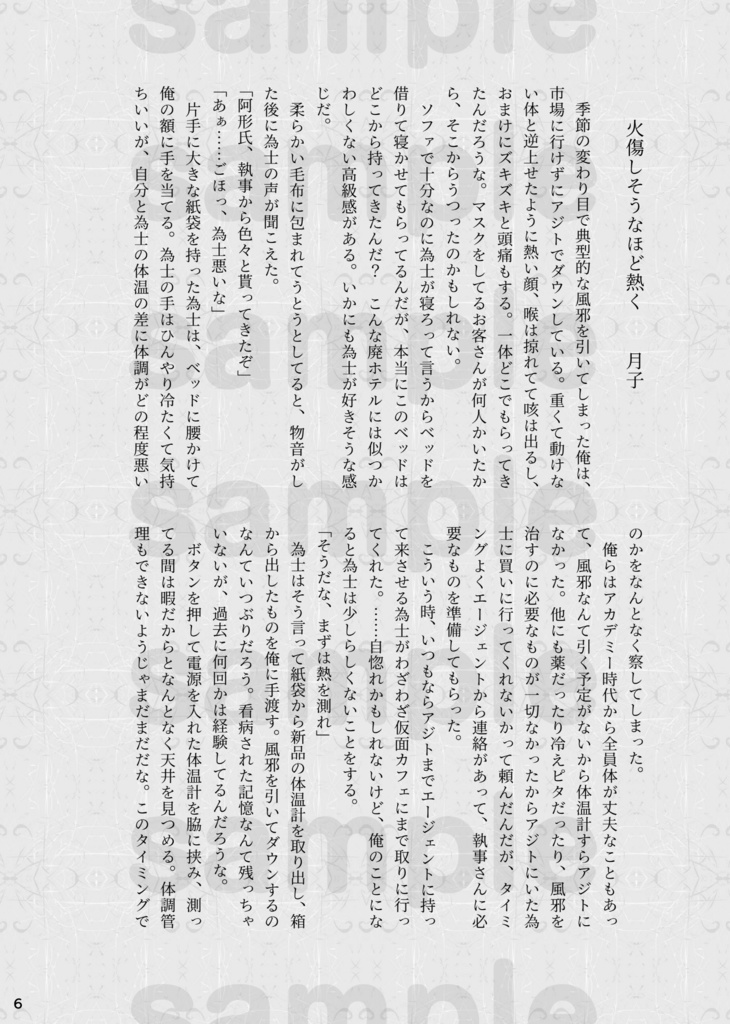 火傷しそうなほど熱く　　月子
季節の変わり目で典型的な風邪を引いてしまった俺は、
市場に行けずにアジトでダウンしている。重くて動けな
い体と逆上せたように熱い顔、喉は掠れてて咳は出るし、
おまけにズキズキと頭痛もする。一体どこでもらってき
たんだろうな。マスクをしてるお客さんが何人かいたか
ら、そこからうつったのかもしれない。
ソファで十分なのに為士が寝ろって言うからベッドを
借りて寝かせてもらってるんだが、本当にこのベッドは
どこから持ってきたんだ？　こんな廃ホテルには似つか
わしくない高級感がある。いかにも為士が好きそうな感
じだ。
柔らかい毛布に包まれてうとうとしてると、物音がし
た後に為士の声が聞こえた。
「阿形氏、執事から色々と貰ってきたぞ」
「あぁ……ごほっ、為士悪いな」
片手に大きな紙袋を持った為士は、ベッドに腰かけて
俺の額に手を当てる。為士の手はひんやり冷たくて気持
ちいいが、自分と為士の体温の差に体調がどの程度悪い
のかをなんとなく察してしまった。
俺らはアカデミー時代から全員体が丈夫なこともあっ
て、風邪なんて引く予定がないから体温計すらアジトに
なかった。他にも薬だったり冷えピタだったり、風邪を
治すのに必要なものが一切なかったからアジトにいた為
士に買いに行ってくれないかって頼んだんだが、タイミ
ングよくエージェントから連絡があって、執事さんに必
要なものを準備してもらった。
こういう時、いつもならアジトまでエージェントに持っ
て来させる為士がわざわざ仮面カフェにまで取りに行っ
てくれた。……自惚れかもしれないけど、俺のことにな
ると為士は少しらしくないことをする。
「そうだな、まずは熱を測れ」
為士はそう言って紙袋から新品の体温計を取り出し、箱
から出したものを俺に手渡す。風邪を引いてダウンするの
なんていつぶりだろう。看病された記憶なんて残っちゃ
いないが、過去に何回かは経験してるんだろうな。
ボタンを押して電源を入れた体温計を脇に挟み、測っ
てる間は暇だからとなんとなく天井を見つめる。体調管
理もできないようじゃまだまだだな。このタイミングで
6
sample
sample
sample
sample
sample
sample
sample